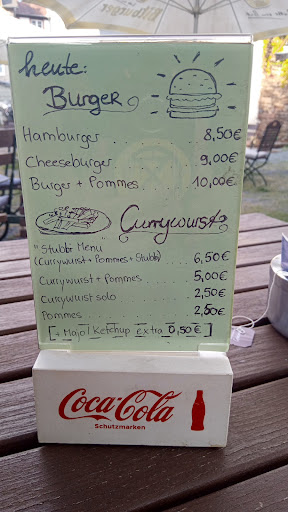 Bitburger
heute:
Burger
Hamburger......... 8,50€
Cheeseburger....... 9,00€
Burger + Pommes..... 10,00€
Currywurst
"Stubbi Menü"
(Currywurst + Pommes + Stubbi)..... 6,50€
Currywurst + Pommes...... 5,00€
Currywurst solo........ 2,50€
Pommes............ 2,50€
[+ Majo / Ketchup extra 0,50€]
Coca-Cola
Schutzmarken